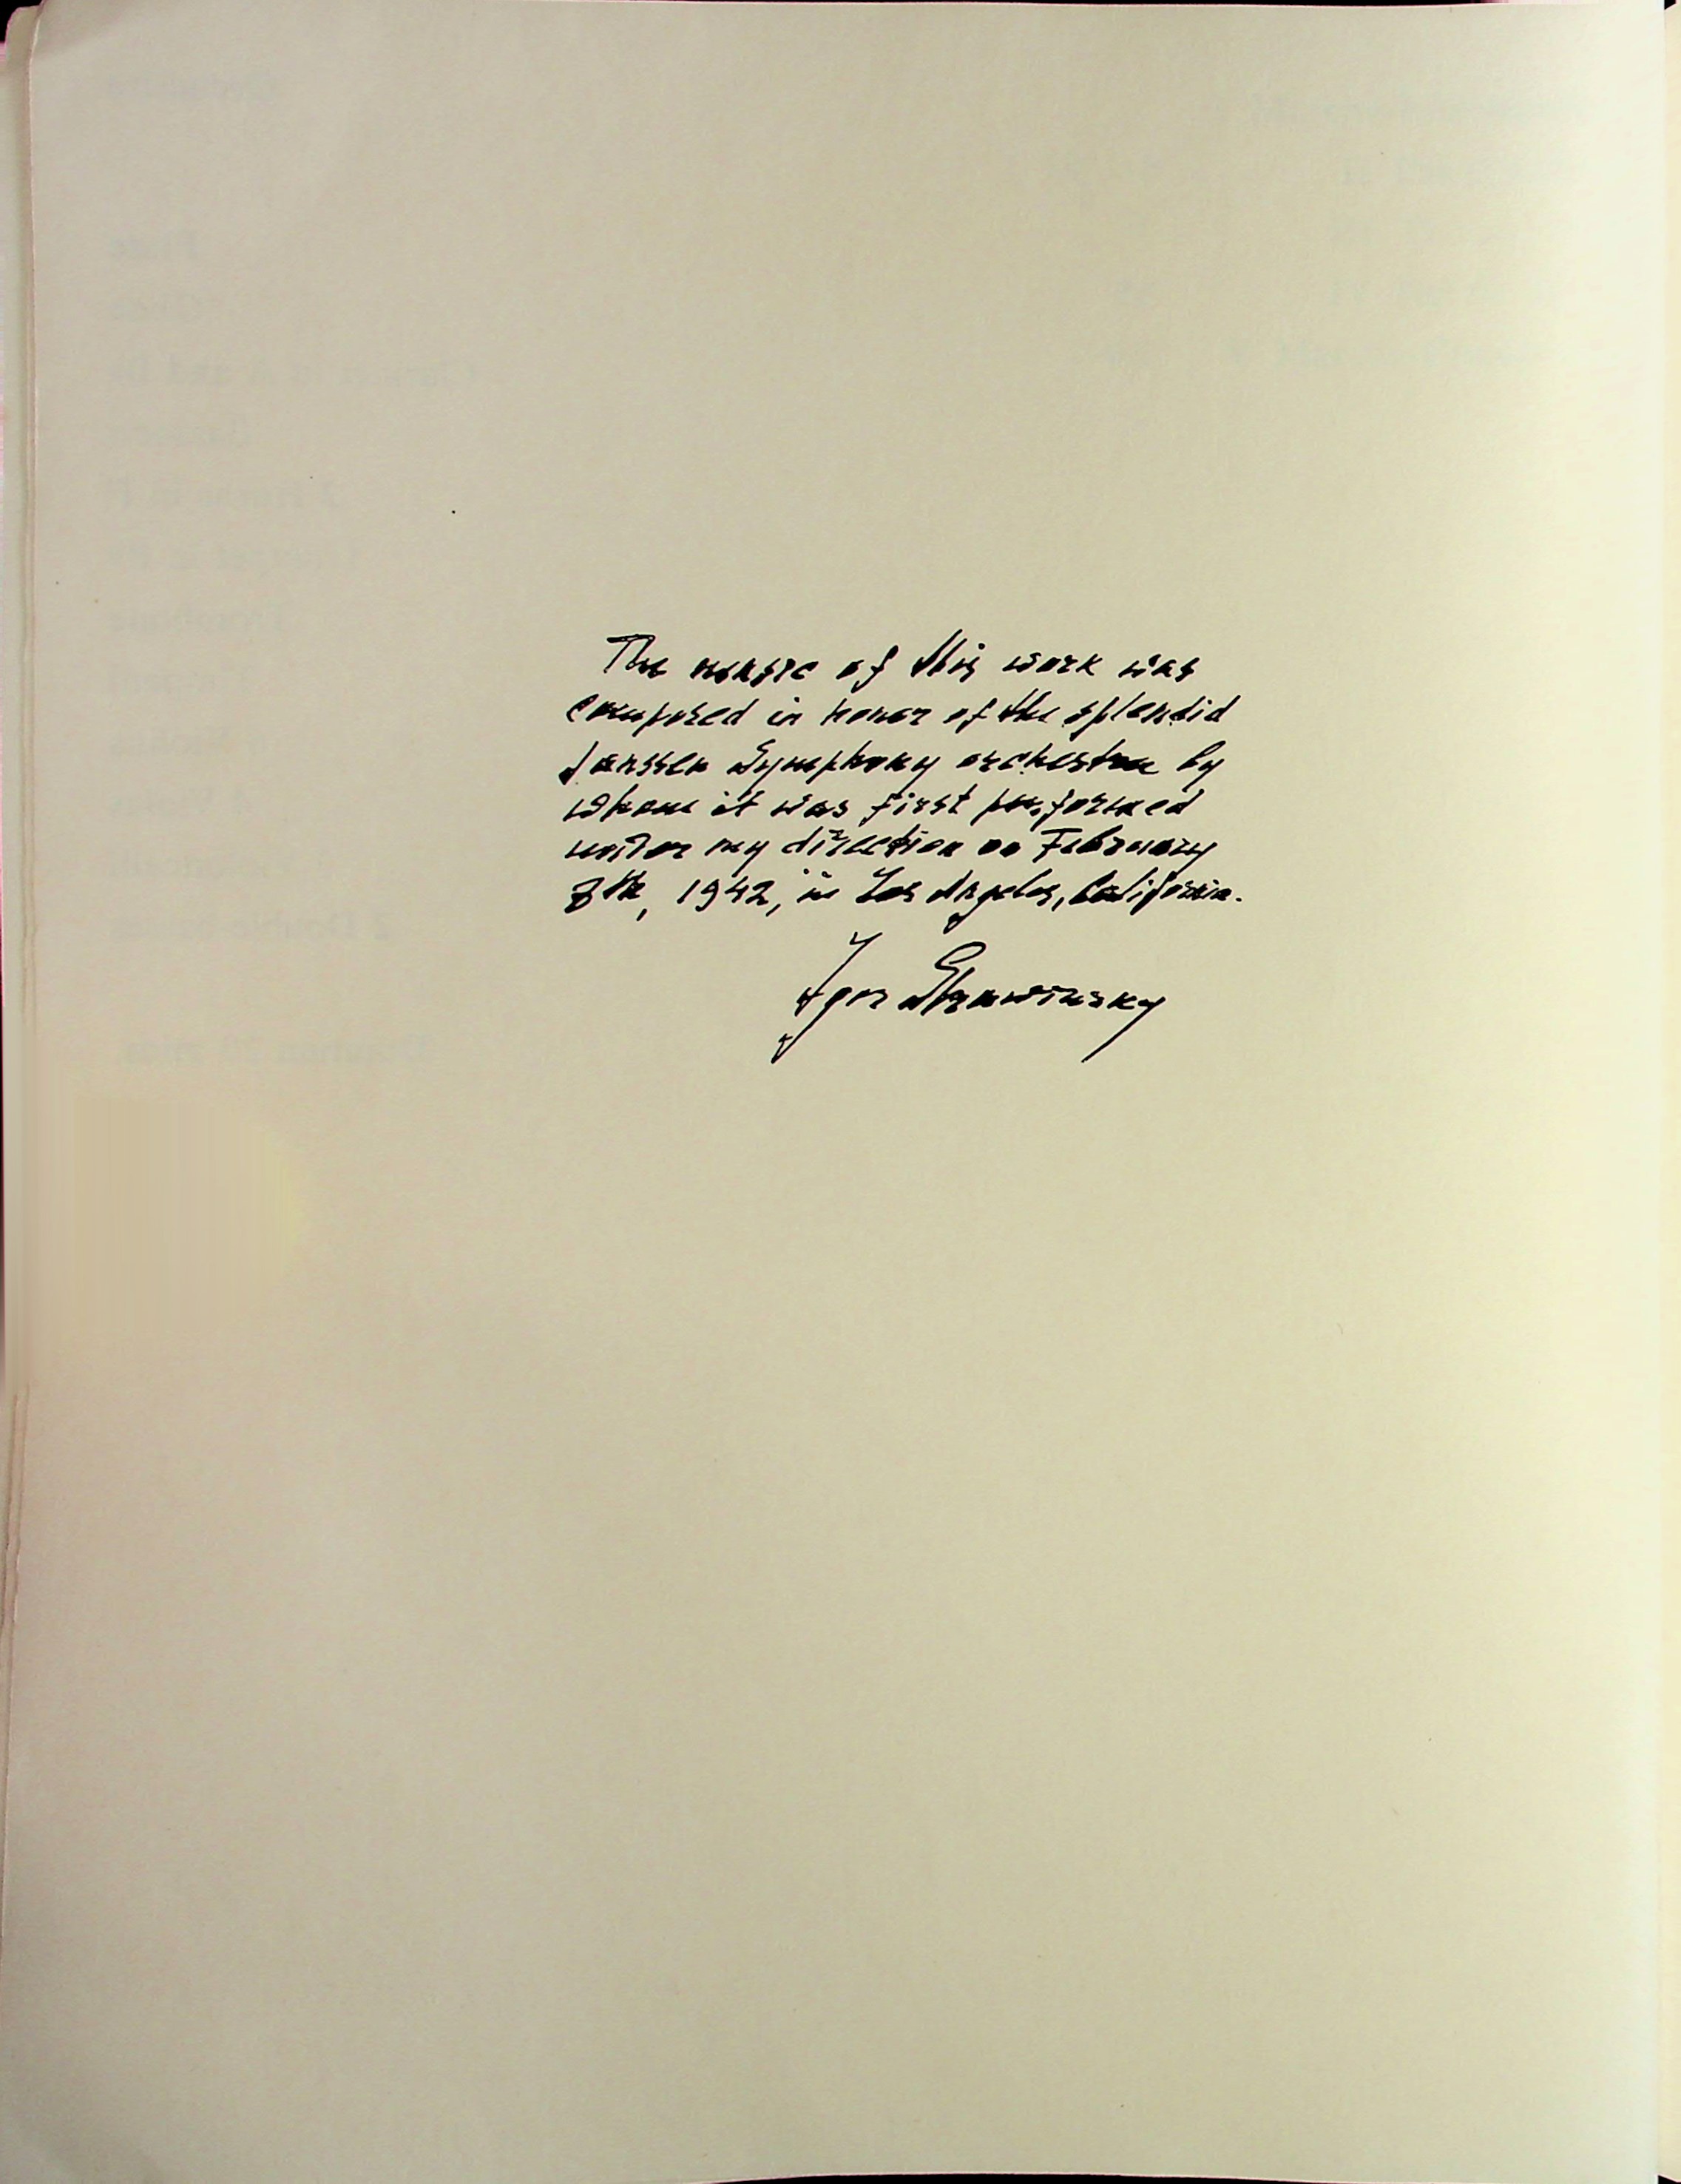 The music of this work was
composed in honor of the splendid
Janssen Symphony orchestra by
whom it was first performed
under my direction on February
8th, 1942, in Los Angeles, California.
Igor Strawinsky